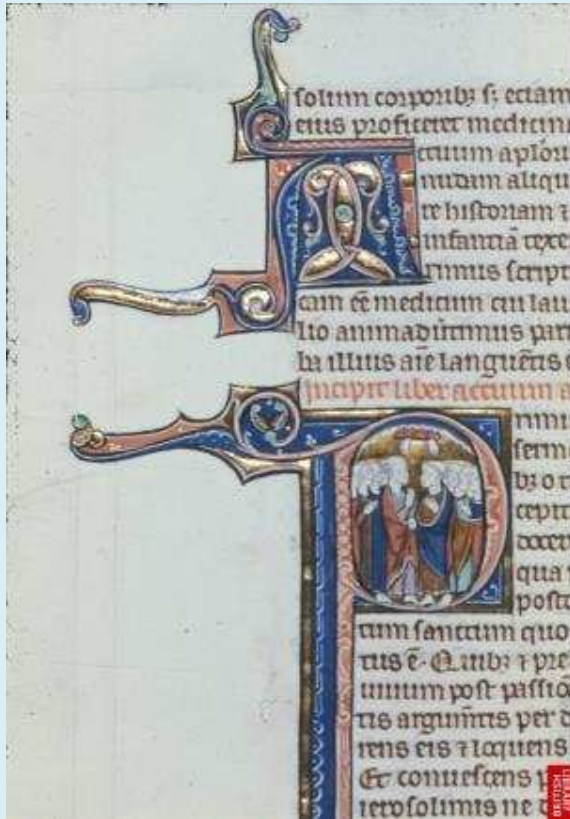 solum corporibꝫ sꝫ etiam
eius proficeret medicine
A
ctuum aplor
nudam aliqu
re historiam ⁊
infantiā texe
timus script
cam eē medicum cui lau
lio animaduͥtimus part
ba illius aīe languētis
Incipit liber actuum a
P
rimu
sermo
bꝫ o t
cepit
docere
qua
poste
tum sanctum quo
tus ē. Quibꝫ ⁊ pre
uiuum post passiō
tis argumētis per d
rens eis ⁊ loquens
Et conuescens p
ierosolimis ne d
BRITISH
LIBRARY